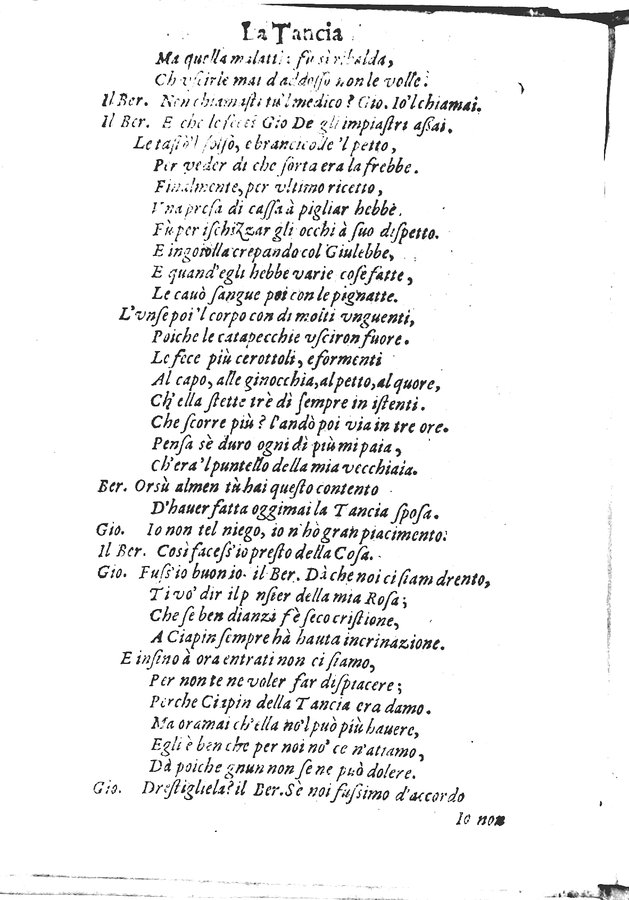 La Tancia
Ma quella malattia fù sì ribalda,
Ch'vscirle mai d'addosso non le volle.
Il Ber. Non chiamasti tù'l medico? Gio. Io'l chiamai.
Il Ber. E che le fece? Gio De gli impiastri assai.
Le tastò'l polso, e brancicolle 'l petto,
Per veder di che sorta era la frebbe.
Finalmente, per vltimo ricetto,
Vna presa di cassa à pigliar hebbe.
Fù per ischizzar gli occhi à suo dispetto.
E ingoiolla crepando col Giulebbe,
E quand'egli hebbe varie cose fatte,
Le cauò sangue poi con le pignatte.
L'vnse poi 'l corpo con di molti vnguenti,
Poiche le catapecchie vsciron fuore.
Le fece più cerottoli, e formenti
Al capo, alle ginocchia, al petto, al quore,
Ch'ella stette trè dì sempre in istenti.
Che scorre più? l'andò poi via in tre ore.
Pensa sè duro ogni dì più mi paia,
Ch'era 'l puntello della mia vecchiaia.
Ber. Orsù almen tù hai questo contento
D'hauer fatta oggimai la Tancia sposa.
Gio. Io non tel niego, io n'hò gran piacimento:
Il Ber. Così facess'io presto della Cosa.
Gio. Fuss'io buon io. il Ber. Dà che noi ci siam drento,
Ti vo' dir il p nsier della mia Rosa;
Che se ben dianzi f'è seco cristione,
A Ciapin sempre hà hauta incrinazione.
E insino à ora entrati non ci siamo,
Per non te ne voler far dispiacere;
Perche Ciapin della Tancia era damo.
Ma oramai ch'ella no'l può più hauere,
Egli è ben che per noi no' ce n'aitamo,
Dà poiche gnun non se ne può dolere.
Gio. Drestigliela? il Ber. Sè noi fussimo d'accordo
Io non